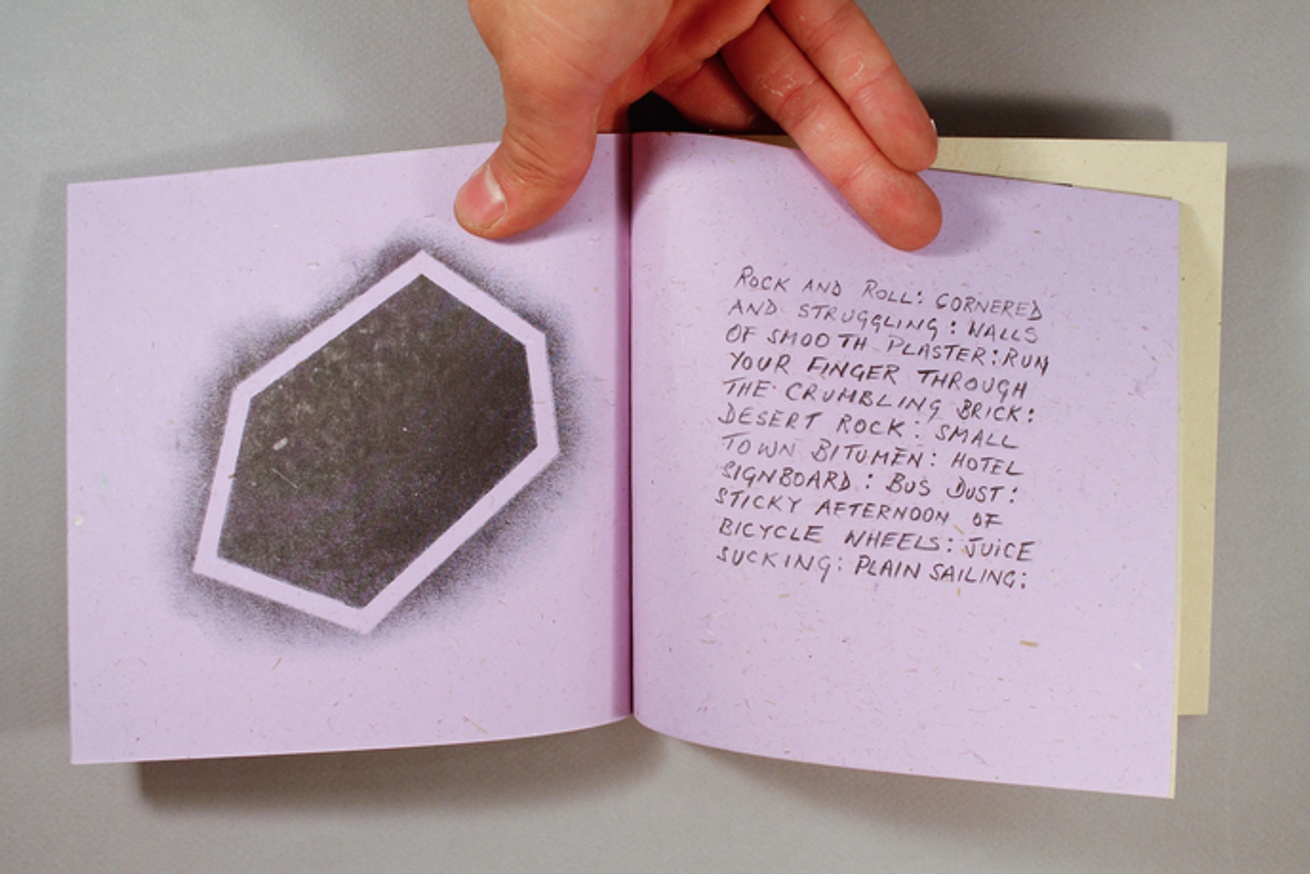 ROCK AND ROLL: CORNERED
AND STRUGGLING: WALLS
OF SMOOTH PLASTER: RUN
YOUR FINGER THROUGH
THE CRUMBLING BRICK:
DESERT ROCK: SMALL
TOWN BITUMEN: HOTEL
SIGNBOARD: BUS DUST:
STICKY AFTERNOON OF
BICYCLE WHEELS: JUICE
SUCKING: PLAIN SAILING: